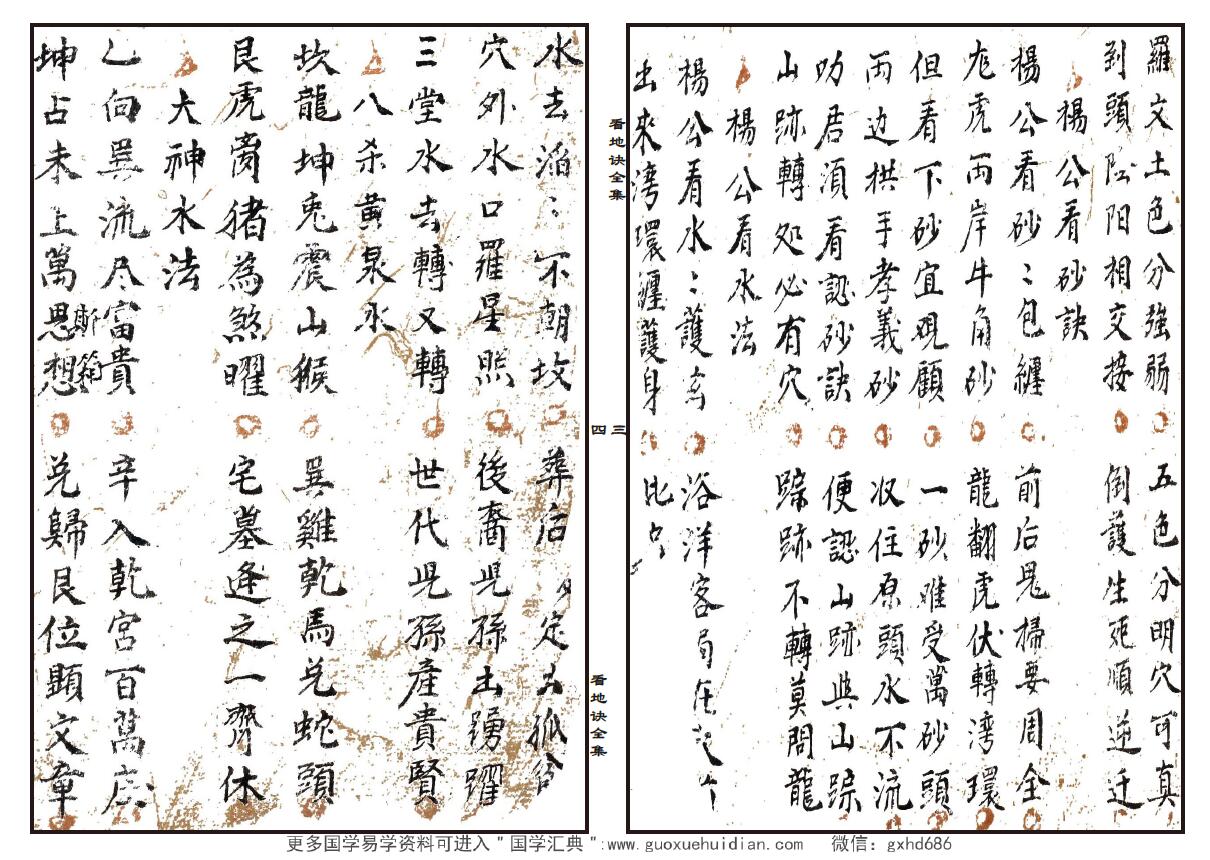 羅文土色分強弱 五色分明穴可真
到頭陰阳相交接 倒護生死順逆迁
楊公看砂訣
楊公看砂〻包纏 前后鬼掃要周全
龙虎两岸牛角砂 龍翻虎伏轉湾環
但看下砂宜覌顧 一砂难受萬砂頭
两边拱手孝義砂 收住原頭水不流
叻君須看認砂訣 便認山跡與山踪
山跡轉処必有穴 踪跡不轉莫問龍
楊公看水法
楊公看水〻護 浴洋客局在
出來湾環纏護身 比
看地诀全集
三
四
水去滔〻不朝坟 葬后定出孤
穴外水口羅星照 後裔児孫出踴躍
三堂水去轉又轉 世代児孫産貴賢
八杀黄泉水
坎龍坤兎震山猴 巽雞乾馬兑蛇頭
艮虎离猪為煞曜 宅墓逄之一齊休
大神水法
乙向巽流尽富貴 辛入乾宮百萬庄
坤占未上萬思想 兑歸艮位顕文章
斯箱
看地诀全集
更多国学易学资料可进入＂国学汇典＂:www.guoxuehuidian.com 微信：gxhd686